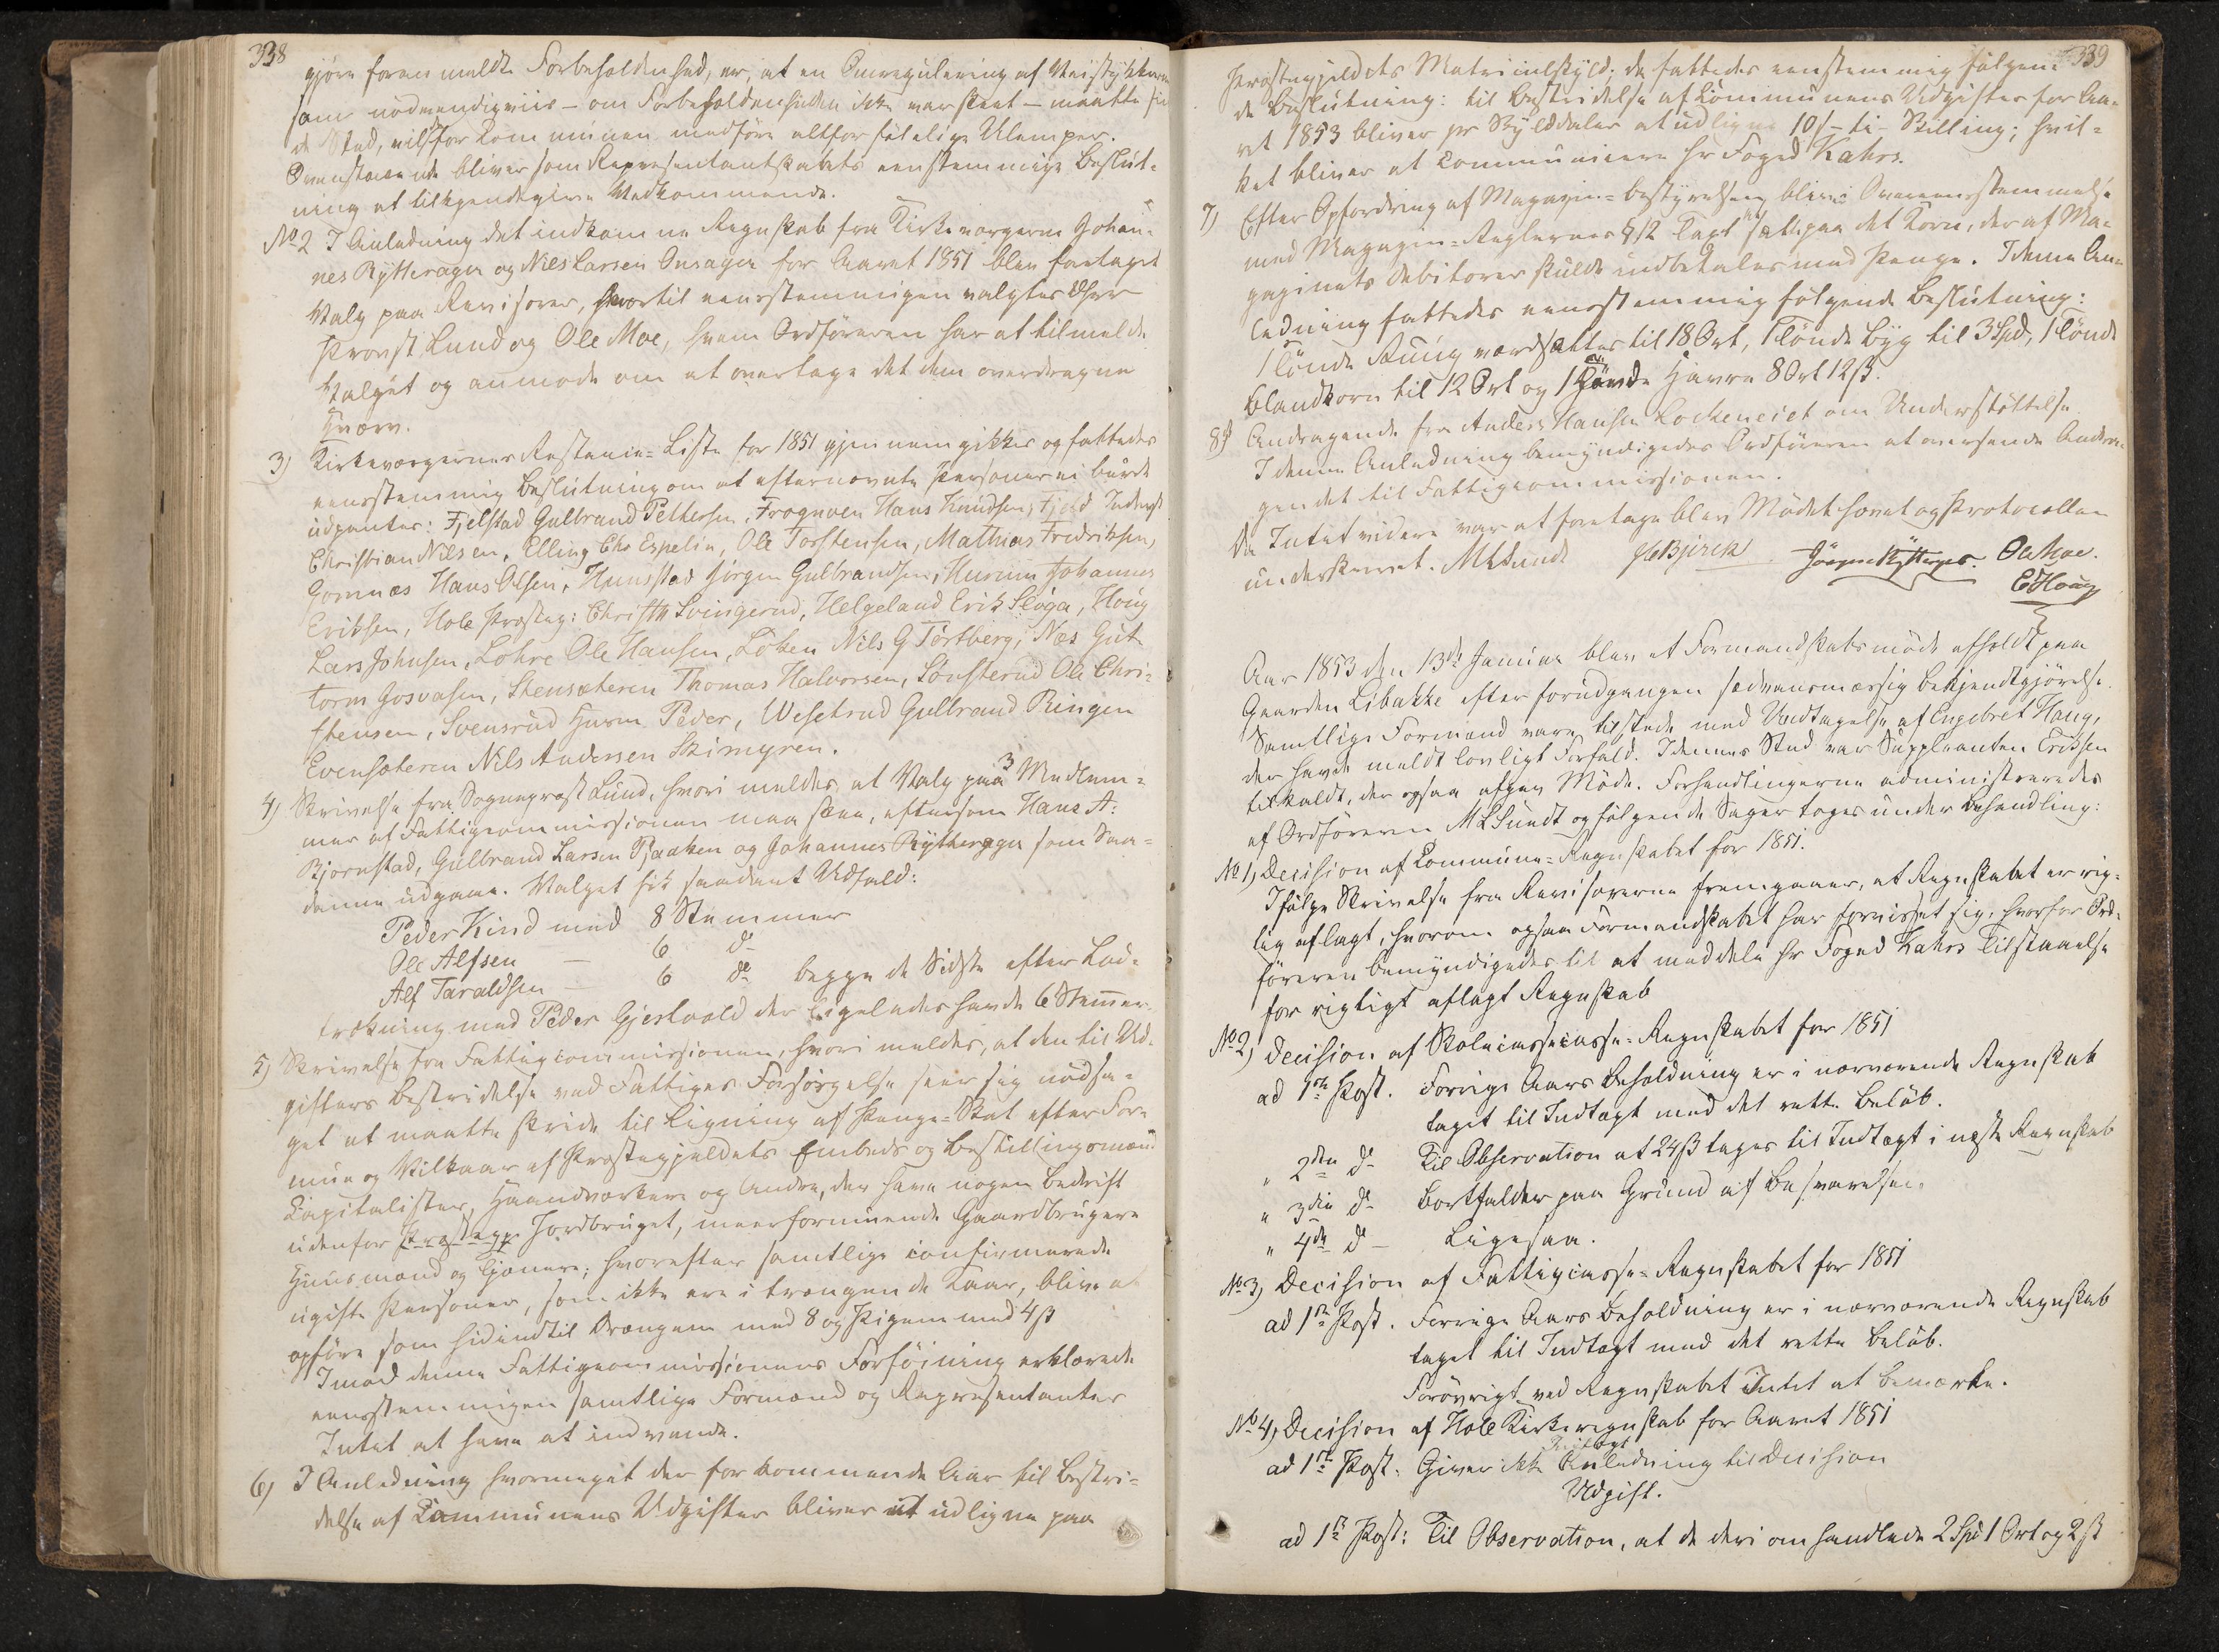 338
gjöre foranmeldte Forbeholdenhed, er, at en Omregulering af Veistykkerne
som nødvendigviis – om Forbeholdenheden ikke var skeet – maatte fin
de Sted, vil for Kommunen medføre altfor følelige Ulemper.
Ovenstaaende bliver som Repræsentantskabets eenstemmige Beslut-
ning at tilkjendegive Vedkommende.
No 2 I Anledning det indkomne Regnskab fra Kirkeværgerne Johan-
nes Rytterager og Niels Larsen Onsager for Aaret 1851 blev foretaget
Valg paa Revisorer, hvortil eensstemmigen valgtes Dhrr
Provst Lund og Ole Moe, hvem Ordføreren har at tilmelde
Valget og anmode om at overtage det dem overdragne
Hverv.
3) Kirkeværgernes Restance-Liste for 1851 gjennemgikkes og fattedes
eensstemmig Beslutning om at efternævnte Personer ei burde
udpantes: Fjelstad Gulbrand Pettersen, Frognøen Hans Knudsen, Fjeld Inderst
Christian Nilsen, Elling Chr Espelin, Ole Torstensen, Mathias Fredriksen,
Gomnæs Hans Olsen, Hunsstad Jörgen Gulbrandsen, Hurum Johannes
Eriksen, Hole Præsteg: Christh Svingerud, Helgeland Erik Sløga, Houg
Lars Johnsen, Lohre Ole Hansen, Löken Nils G Tortberg, Næs Gut
torm Gosvasen, Stensæteren Thomas Halvorsen, Sönsterud Ole Chri-
stensen, Svensrud Huusm Peder, Wesetrud Gulbrand Ringen
Evensæteren Nils Andersen Skimyren.
4) Skrivelse fra Sogneprest Lund, hvori meldes, at Valg paa 3 Medlem-
mer af Fattigcommissionen maa skee, eftersom Hans A:
Bjornstad, Gulbrand Larsen Raaken og Johannes Rytterager som Saa-
danne udgaae. Valget fik saadant Udfald:
Peder Kind med 8 Stemmer
Ole Alfsen — 6 do
Alf Taraldsen — 6 do begge de Sidste efter Lod-
trækning med Peder Gjesvold der ligeledes havde 6 Stemmer.
5) Skrivelse fra Fattigcommissionen, hvori meldes, at den til Ud-
gifters Bestridelse ved Fattiges Forsørgelse seer sig nødsa-
get at maatte skride til Ligning af Penge-Skat efter For-
mue og Vilkaar af Præstegjeldets Embeds og Bestillingsmænd
Capitalister, Haandværkere og Andre, der have nogen Bedrift
udenfor Jordbruget, meerformuende Gaardbrugere
Huusmænd og Tjenere; hvorefter samtlige confirmerede
ugifte Personer, som ikke ere i trængende Kaar, blive at
opföre som hidindtil Drengene med 8 og Pigerne med 4ß
Imod denne Fattigcommissionens Forføining erklærede
eensstemmigen samtlige Formænd og Repræsentanter
Intet at have at indvende.
6) I Anledning hvormeget der for kommende Aar til Bestri-
delse af Communens Udgifter bliver at udligne paa
339
Præstegjeldets Matriculskyld, da fattedes eenstemmig følgen-
de Beslutning: til Bestridelse af Communens Udgifter for Aa-
ret 1853 bliver pr Skylddaler at udligne 10/ – ti – Skilling; hvil-
ket bliver at communicere Hr Foged Kahrs.
7) Efter Opfordring af Magazin-Bestyrelsen blev i Overeensstemmelse
med Magazin-Reglernes § 12 Taxt sat paa det Korn, der af Ma-
gazinets Debitorer skulde indbetales med Penge. I denne An-
ledning fattedes eensstemmig følgende Beslutning:
1 Tönde Rug værdsættes til 18 Ort, 1 Tönde Byg til 3 Spd, 1 Tönde
Blandkorn til 12 Ort og 1 Tönde Havre 8 Ort 12ß.
8) Andragende fra Anders Hansen Lockeneiet om Understøttelse
I denne Anledning bemyndigedes Ordføreren at oversende Andra-
gendet til Fattigcommissionen.
Da Intet videre var at foretage blev Mödet hævet og Protocollen
underskrevet. MLSundt Bjerck Jörgen Rytterager. Ole Moe.
E Houg
Aar 1853 den 13de Januar blev et Formandskabsmöde afholdt paa
Gaarden Libakke efter forudgangen sædvansmæssig Bekjendtgjørelse.
Samtlige Formænd vare tilstede med Undtagelse af Engebret Haug,
der havde meldt lovligt Forfald. I dennes Sted var Suppleanten Eriksen
tilkaldt, der ogsaa afgav Møde. Forhandlingerne administreredes
af Ordföreren MLSundt og følgende Sager toges under Behandling:
No 1) Decision af Commune-Regnskabet for 1851.
Ifølge Skrivelse fra Revisorerne fremgaaer, at Regnskabet er rig-
tig aflagt, hvorom ogsaa Formandskabet har forvisset sig, hvorfor Ord-
føreren bemyndigedes til at meddele Hr Foged Kahrs Tilstaaelse
for rigtigt aflagt Regnskab
No 2) Decision af Skolecasse-Regnskabet for 1851
ad 1ste Post. Forrige Aars Beholdning er i nærværende Regnskab
taget til Indtægt med det rette Beløb.
" 2den do Til Observation at 24ß tages til Indtægt i næste Regnskab
" 3die do Bortfalder paa Grund af Besvarelsen.
" 4de do — Ligesaa.
No 3) Decision af Fattigcasse-Regnskabet for 1851
ad 1ste Post. Forrige Aars Beholdning er i nærværende Regnskab
taget til Indtægt med det rette Beløb.
Forövrigt ved Regnskabet Intet at bemærke.
No 4) Decision af Hole Kirkeregnskab for Aaret 1851
Indtægt
ad 1ste Post. Giver ikke Anledning til Decision
Udgift.
ad 1ste Post: Til Observation, at de deri omhandlede 2 Spd 1 Ort og 2ß